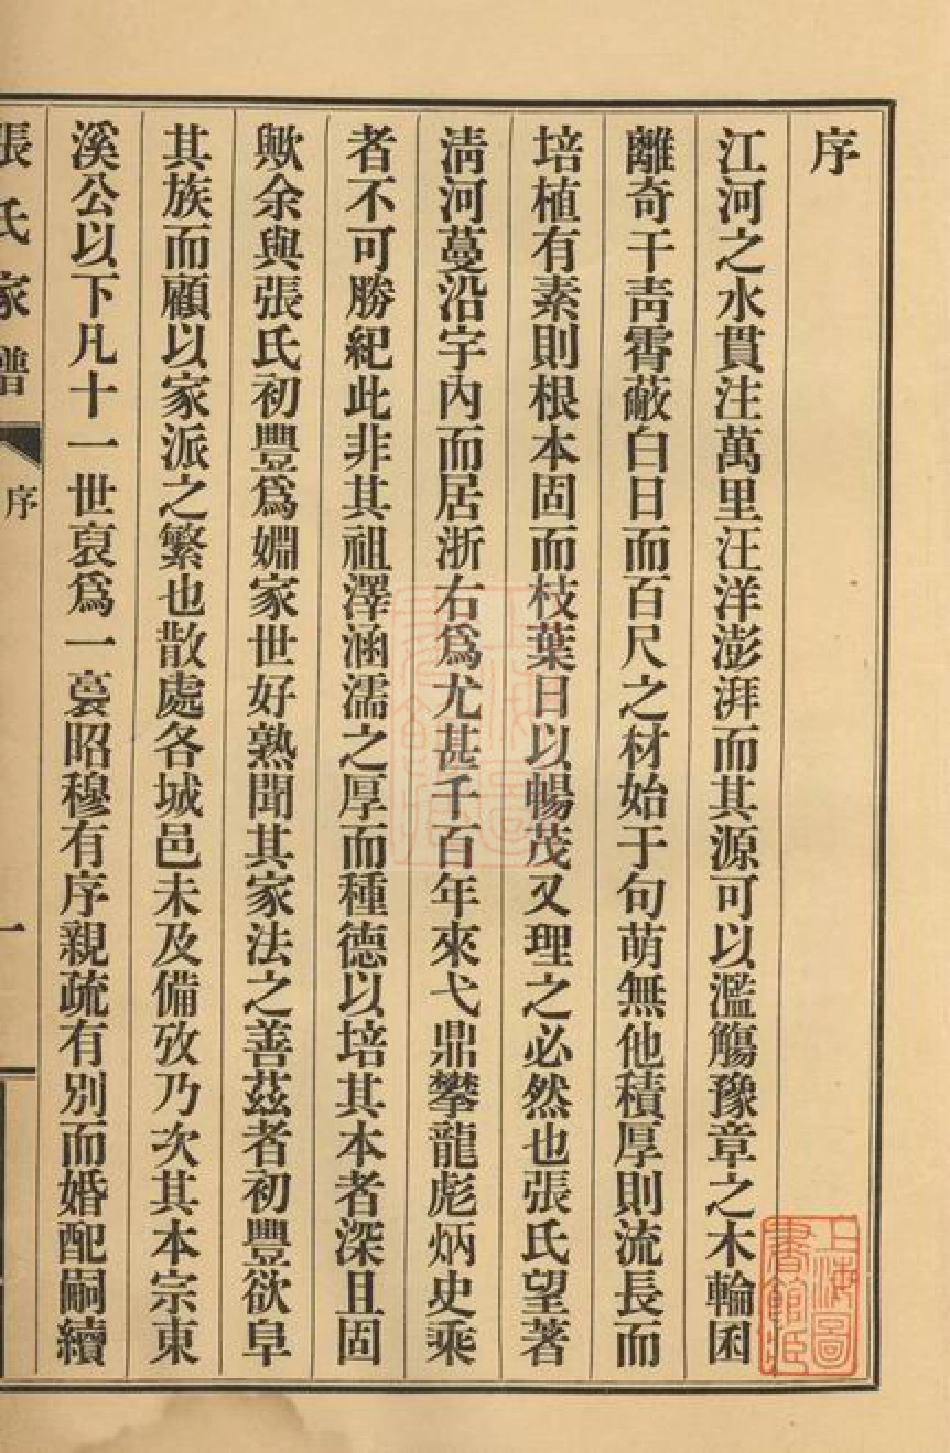 序
江河之水貫注萬里汪洋澎湃而其源可以濫觴豫章之木輪囷
離奇干靑霄蔽白日而百尺之材始于句萌無他積厚則流長而
培植有素則根本固而枝葉日以暢茂又理之必然也張氏望著
淸河蔓沿宇內而居浙右爲尤甚千百年來弋鼎攀龍彪炳史乘
者不可勝紀此非其祖澤涵濡之厚而種德以培其本者深且固
歟余與張氏初豐爲姻家世好熟聞其家法之善茲者初豐欲阜
其族而顧以家派之繁也散處各城邑未及備攷乃次其本宗東
溪公以下凡十一世裒爲一袠昭穆有序親疏有別而婚配嗣續
張氏家譜
序
一
上海圖書館藏